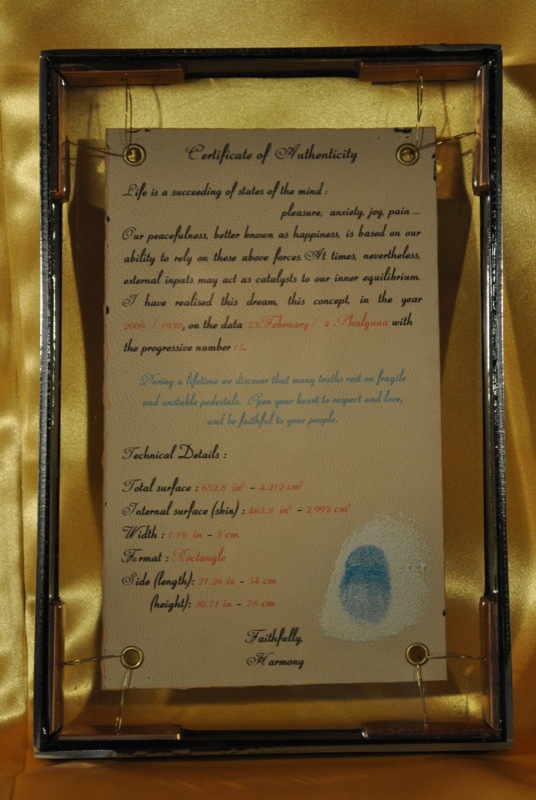 Certificate of Authenticity
Life is a succeeding of states of the mind :
pleasure, anxiety, joy, pain ...
Our peacefulness, better known as happiness, is based on our
ability to rely on these above forces. At times, nevertheless,
external inputs may act as catalysts to our inner equilibrium.
I have realised this dream, this concept, in the year
2009 / 1930, on the data 23.February / 4 . Phalguna with
the progressive number 15.
During a lifetime we discover that many truths rest on fragile
and unstable pedestals. Open your heart to respect and love,
and be faithful to your people.
Technical Details :
Total surface : 652.8 in² - 4.212 cm²
Internal surface (skin) : 463.8 in² - 2.992 cm²
Width : 1.19 in - 3 cm
Format : Rectangle
Side (length): 21.26 in - 54 cm
(height): 30.71 in - 78 cm
Faithfully,
Harmony